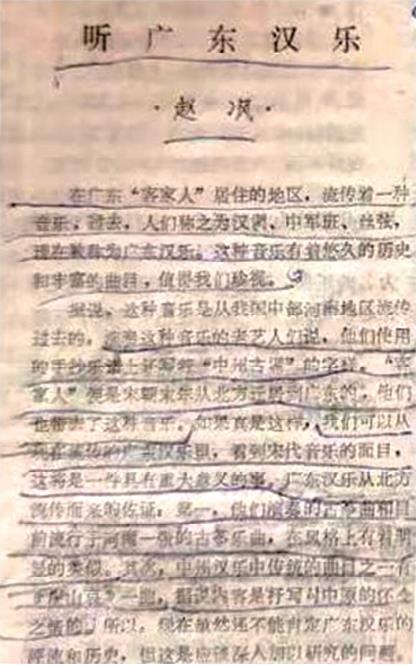 听广东汉乐
·赵沨·
在广东“客家人”居住的地区，流传着一种
音乐，过去，人们称之为汉调、中军班、丝弦，
现在被称为广东汉乐。这种音乐有着悠久的历史
和丰富的曲目，值得我们珍视。
据说，这种音乐是从我国中部河南地区流传
过去的。演奏这种音乐的老艺人们说，他们使用
的手抄乐谱上还写好“中州古调”的字样。“客
家人”是宋朝末年从北方迁居到广东的，他们
也带去了这种音乐。如果真是这样，我们可以从
流传的广东汉乐里，看到宋代音乐的面目，
这将是一件具有重大意义的事。广东汉乐从北方
流传而来的佐证：第一，他们演奏的古筝曲和目
前流行于河南一带的古筝乐曲，在风格上有着明
显的类似。其次，中州汉乐中传统的曲目之一有
山》一曲，据说内容是抒写对中原的怀念
之情的。所以，现在虽然还不能肯定广东汉乐的
源流和历史，但这是应该深入加以研究的问题。